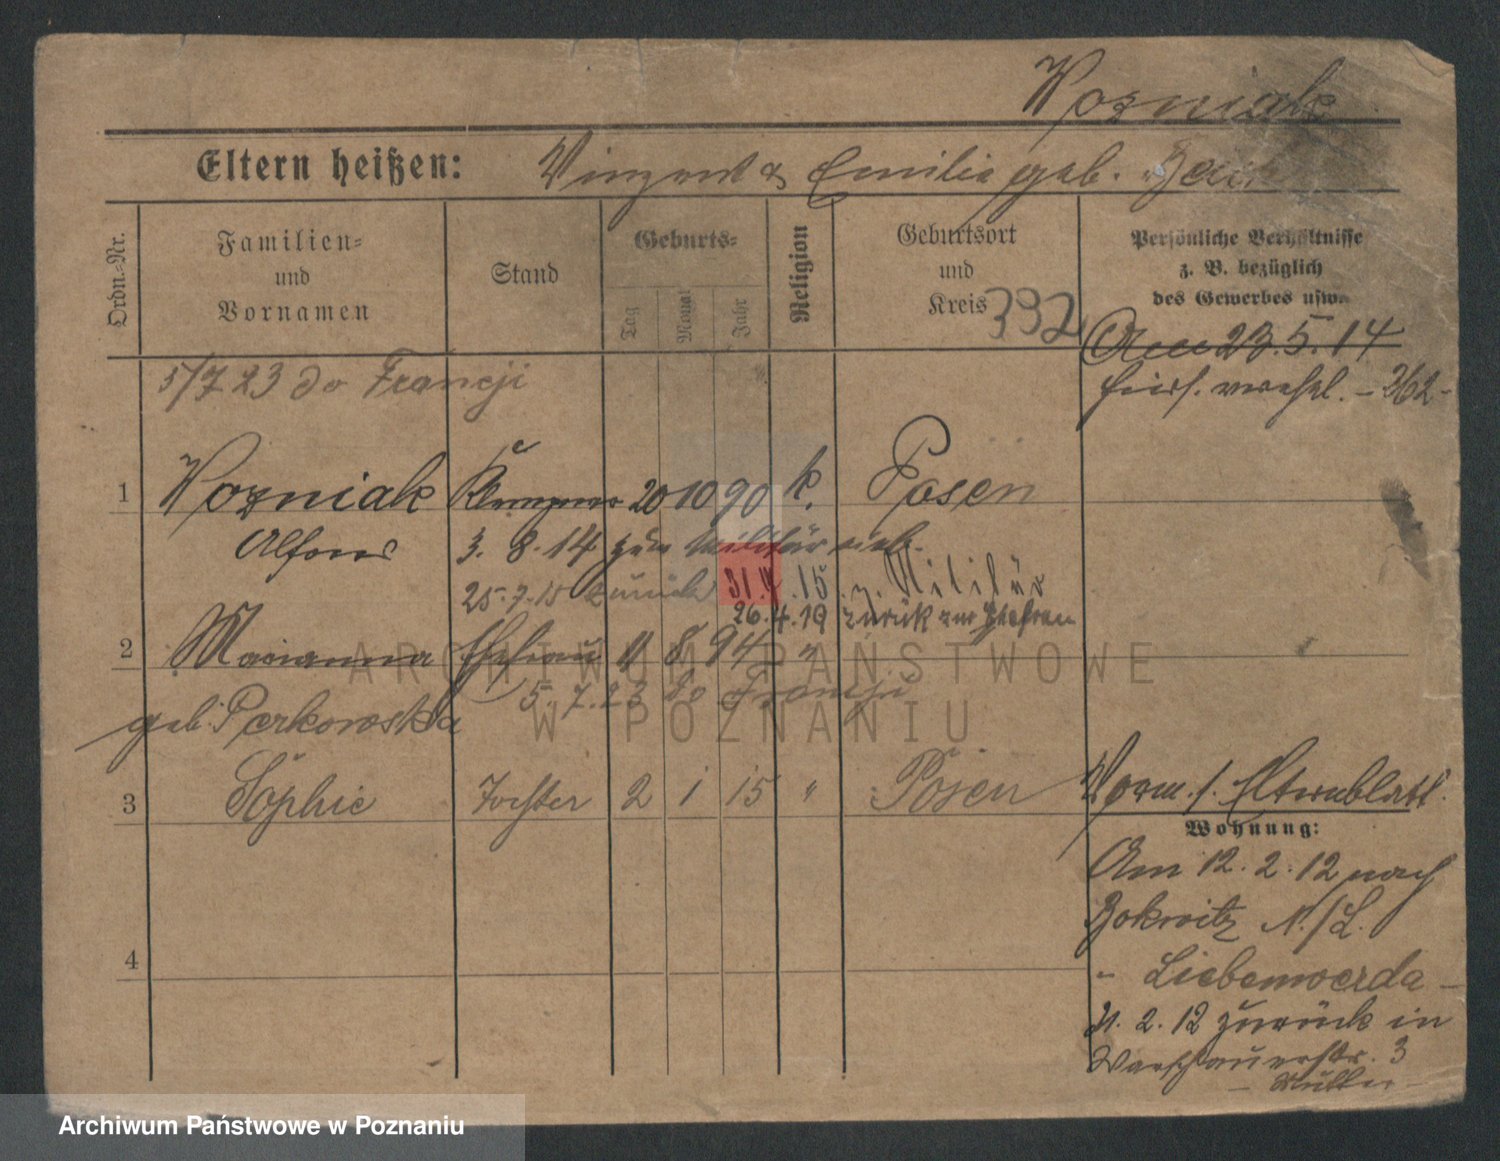 Wozniak
Eltern heißen: Vinzent & Emilie geb.
Ordn.-Nr.
Familien-
und
Vornamen
Stand
Geburts-
Tag
Monat
Jahr
Religion
Geburtsort
und
Kreis 392
Persönliche Verhältnisse
z. B. bezüglich
des Gewerbes usw.
Am 23.5.14
- 262 -
5/7 23 do Francji
1 Wozniak Klempner 20 10 90 k. Posen
Alfons 3. 8. 14 zum Militär
25.7.15 zurück 31. .15 z. Militär
26.4.19 zurück zur Ehefrau
2 Marianna Ehefrau 11 8 94 "
5. 7. 23 do Francji
geb. Perkowska
3 Sophie Tochter 2 1 15 " Posen
Vorm. s. Elternblatt.
Wohnung:
Am 12. 2. 12 nach
Bokwitz N./L.
" Liebenwerda -
21. 2. 12 zurück in
Warschauerstr. 3
4
ARCHIWUM PAŃSTWOWE
W POZNANIU
Archiwum Państwowe w Poznaniu